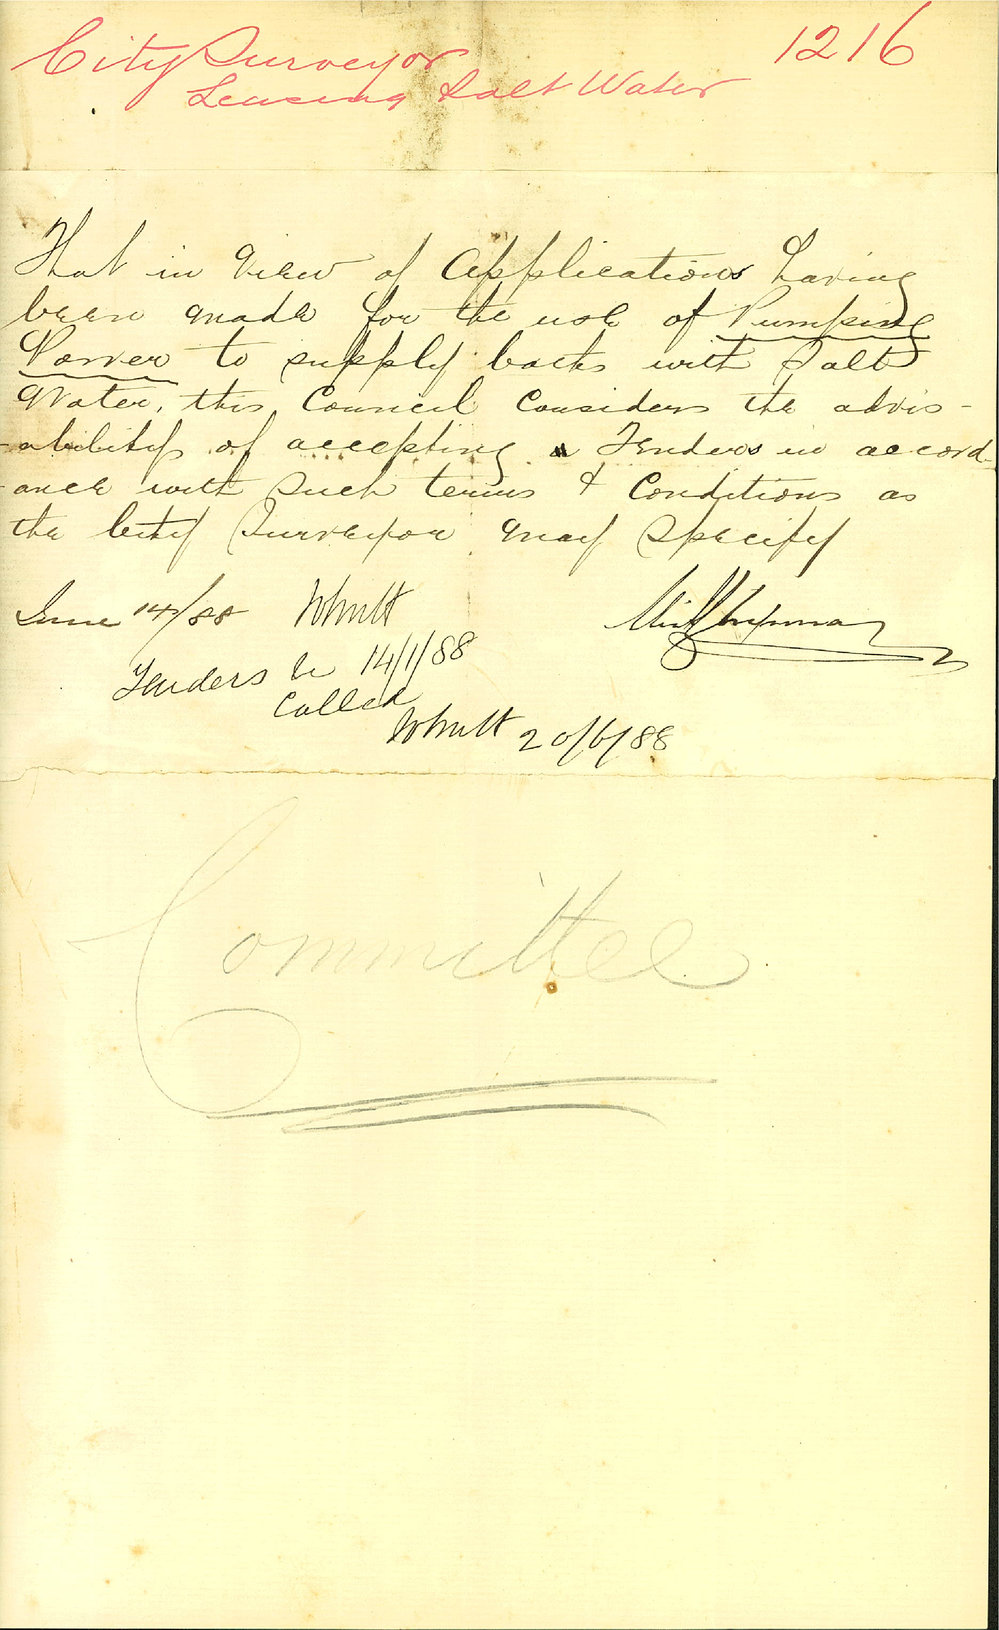 City Surveyor 1216
Leasing Salt Water
That in view of Applications having
been made for the use of Pumping
Power to supply baths with Salt
Water, this Council considers the advis-
-ability of accepting Tenders in accord-
-ance with such terms & Conditions as
the City Surveyor may Specify
June 14/88
14/1/88
Tenders be
Called
20/6/88
Committee